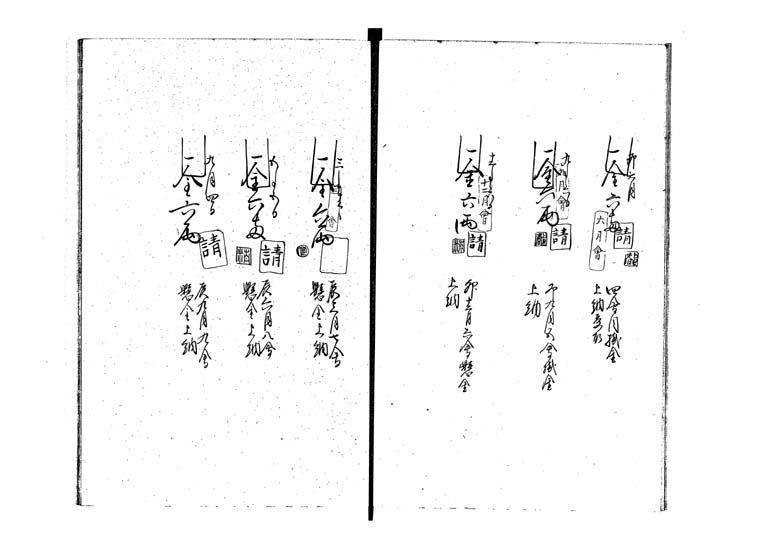 卯六月
一金六両
六月會
請
四會目掛金
上納
一金六両
月會
請
卯九月五會掛金
上納
十二月會
一金六両
請
卯十二月六會懸金
上納
一金六両
會
辰三月七會
懸金上納
一金六両
請
辰六月八會
懸金上納
九月四日
一金六両
請
辰九月九會
懸金上納